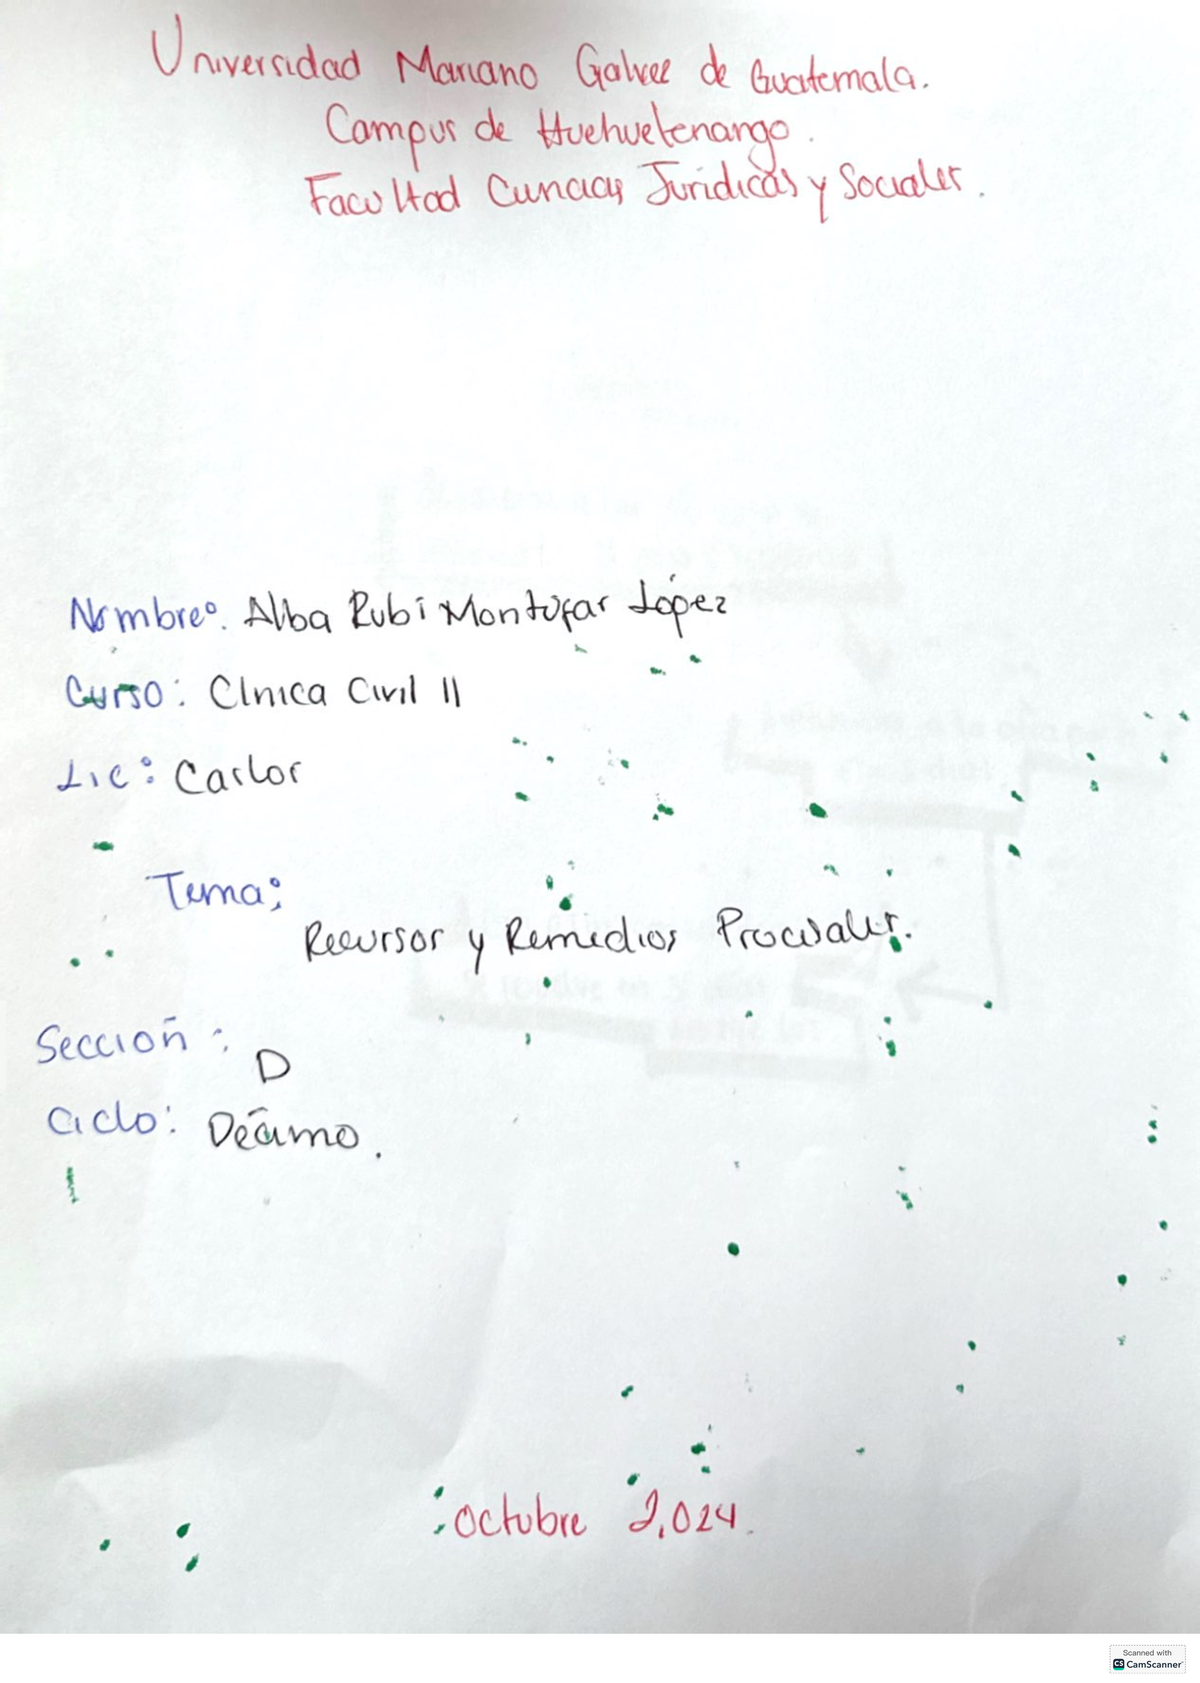 Universidad Mariano Galvez de Guatemala.
Campus de Huehuetenango.
Facultad Ciencias Jurídicas y Sociales.
Nombre: Alba Rubí Montúfar López
Curso: Clnica Civil II
Lic: Carlos
Tema:
Recursos y Remedios Procesales.
Sección:
D
Ciclo: Décimo.
Octubre 2,024.
Scanned with
CS CamScanner